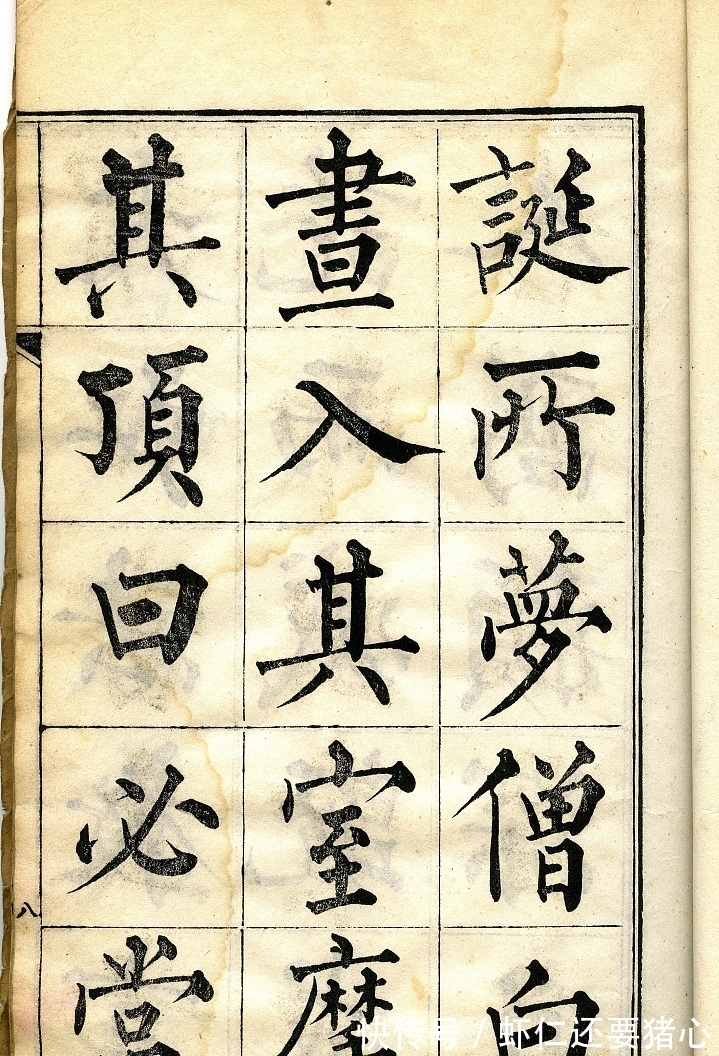 誕所夢僧白
晝入其室摩
其頂曰必當
八
快传号 / 虾仁还要猪心